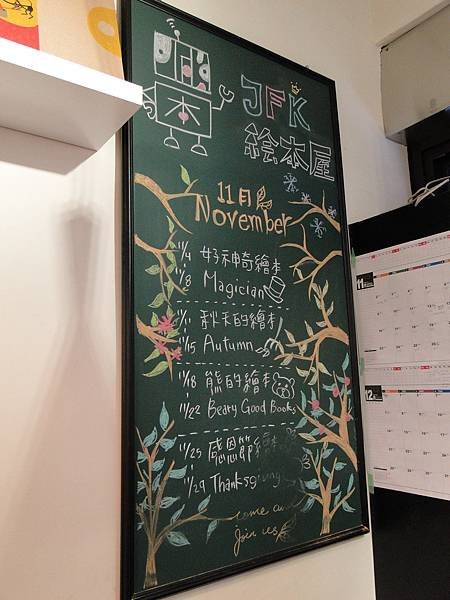 JFK
絵本屋
11月
November
11/4 好神奇繪本
11/8 Magician
秋天的繪本
11/15 Autumn
11/18 熊的繪本
11/22 Beary Good Books
11/25 感恩節繪本
11/29 Thanksgiving
come and
Join us
11
12